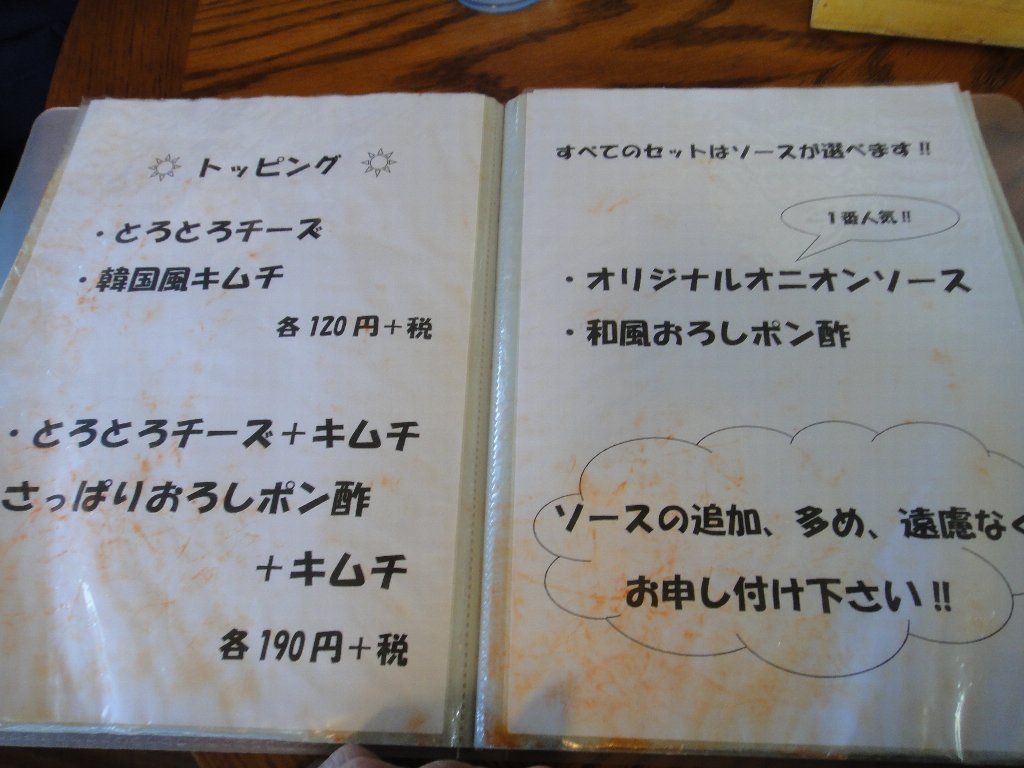 トッピング
・とろとろチーズ
・韓国風キムチ
各120円＋税
・とろとろチーズ＋キムチ
さっぱりおろしポン酢
＋キムチ
各190円＋税
すべてのセットはソースが選べます!!
1番人気!!
・オリジナルオニオンソース
・和風おろしポン酢
ソースの追加、多め、遠慮なく
お申し付け下さい!!